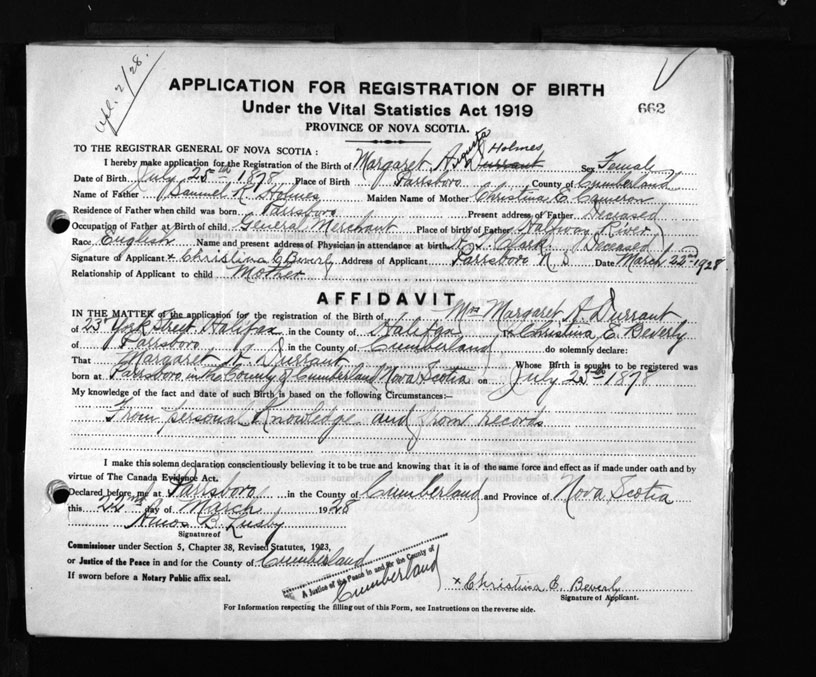 Apl. 2/28.
APPLICATION FOR REGISTRATION OF BIRTH
Under the Vital Statistics Act 1919
662
PROVINCE OF NOVA SCOTIA.
TO THE REGISTRAR GENERAL OF NOVA SCOTIA :
I hereby make application for the Registration of the Birth of Margaret Augusta Durrant Holmes Sex Female
Date of Birth July 25th 1878 Place of Birth Parrsboro County of Cumberland
Name of Father Samuel N. Holmes Maiden Name of Mother Christina E. Cameron
Residence of Father when child was born Parrsboro Present address of Father Deceased
Occupation of Father at Birth of child General Merchant Place of birth of Father Halfway River
Race English Name and present address of Physician in attendance at birth Clark Deceased
Signature of Applicant x Christina E Beverly Address of Applicant Parrsboro N S Date March 22nd 1928
Relationship of Applicant to child Mother
AFFIDAVIT
IN THE MATTER of the application for the registration of the Birth of Mrs Margaret A. Durrant
of 25 York Street Halifax in the County of Halifax & Christina E. Beverly
of Parrsboro in the County of Cumberland do solemnly declare:
That Margaret A. Durrant Whose Birth is sought to be registered was
born at Parrsboro in the County of Cumberland Nova Scotia on July 25th 1878
My knowledge of the fact and date of such Birth is based on the following Circumstances:—
From personal Knowledge and from records
I make this solemn declaration conscientiously believing it to be true and knowing that it is of the same force and effect as if made under oath and by
virtue of The Canada Evidence Act.
Declared before me at Parrsboro in the County of Cumberland and Province of Nova Scotia
this 22nd day of March 1928
Amos B. Lusby
Signature of
Commissioner under Section 5, Chapter 38, Revised Statutes, 1923,
or Justice of the Peace in and for the County of Cumberland
If sworn before a Notary Public affix seal.
A Justice of the Peace in and for the County of
Cumberland
x Christina E. Beverly
Signature of Applicant.
For Information respecting the filling out of this Form, see Instructions on the reverse side.